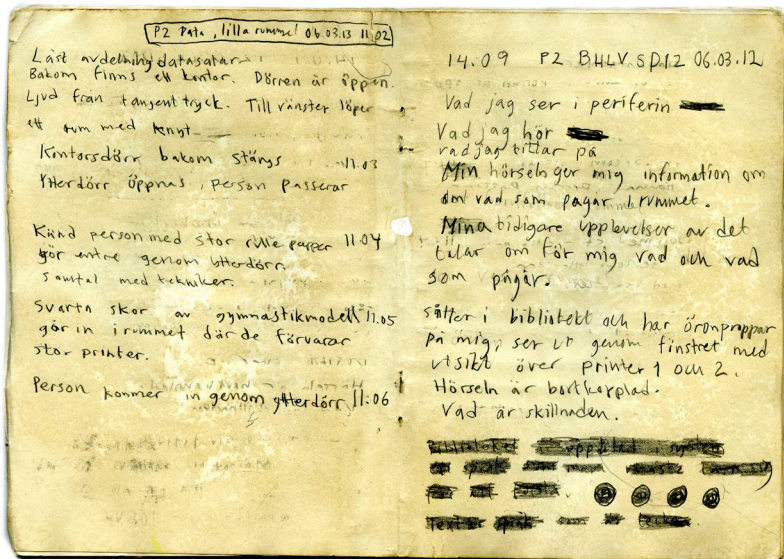 P2 Data, lilla rummet 06.03.13 11.02
Läst avdelning datasalar
Bakom finns ett kontor. Dörren är öppen.
Ljud från tangent tryck. Till vänster löper
ett rum med
Kontorsdörr bakom stängs 11.03
Ytterdörr öppnas, person passerar
Känd person med stor rulle papper 11.04
gör entre genom ytterdörr.
samtal med tekniker.
Svarta skor av gymnastikmodell 11.05
går in i rummet där de förvarar
stor printer.
Person kommer in genom ytterdörr 11:06
14:09 P2 BHLV SD12 06.03.12
Vad jag ser i periferin
Vad jag hör
vad jag tittar på
Min hörsel ger mig information om
om vad som pågår i rummet.
Mina tidigare upplevelser av det
talar om för mig vad och vad
som pågår.
sitter i bibliotekt och har öronproppar
på mig, ser ut genom finstret med
utsikt över printer 1 och 2.
Hörseln är bortkopplad.
Vad är skillnaden.